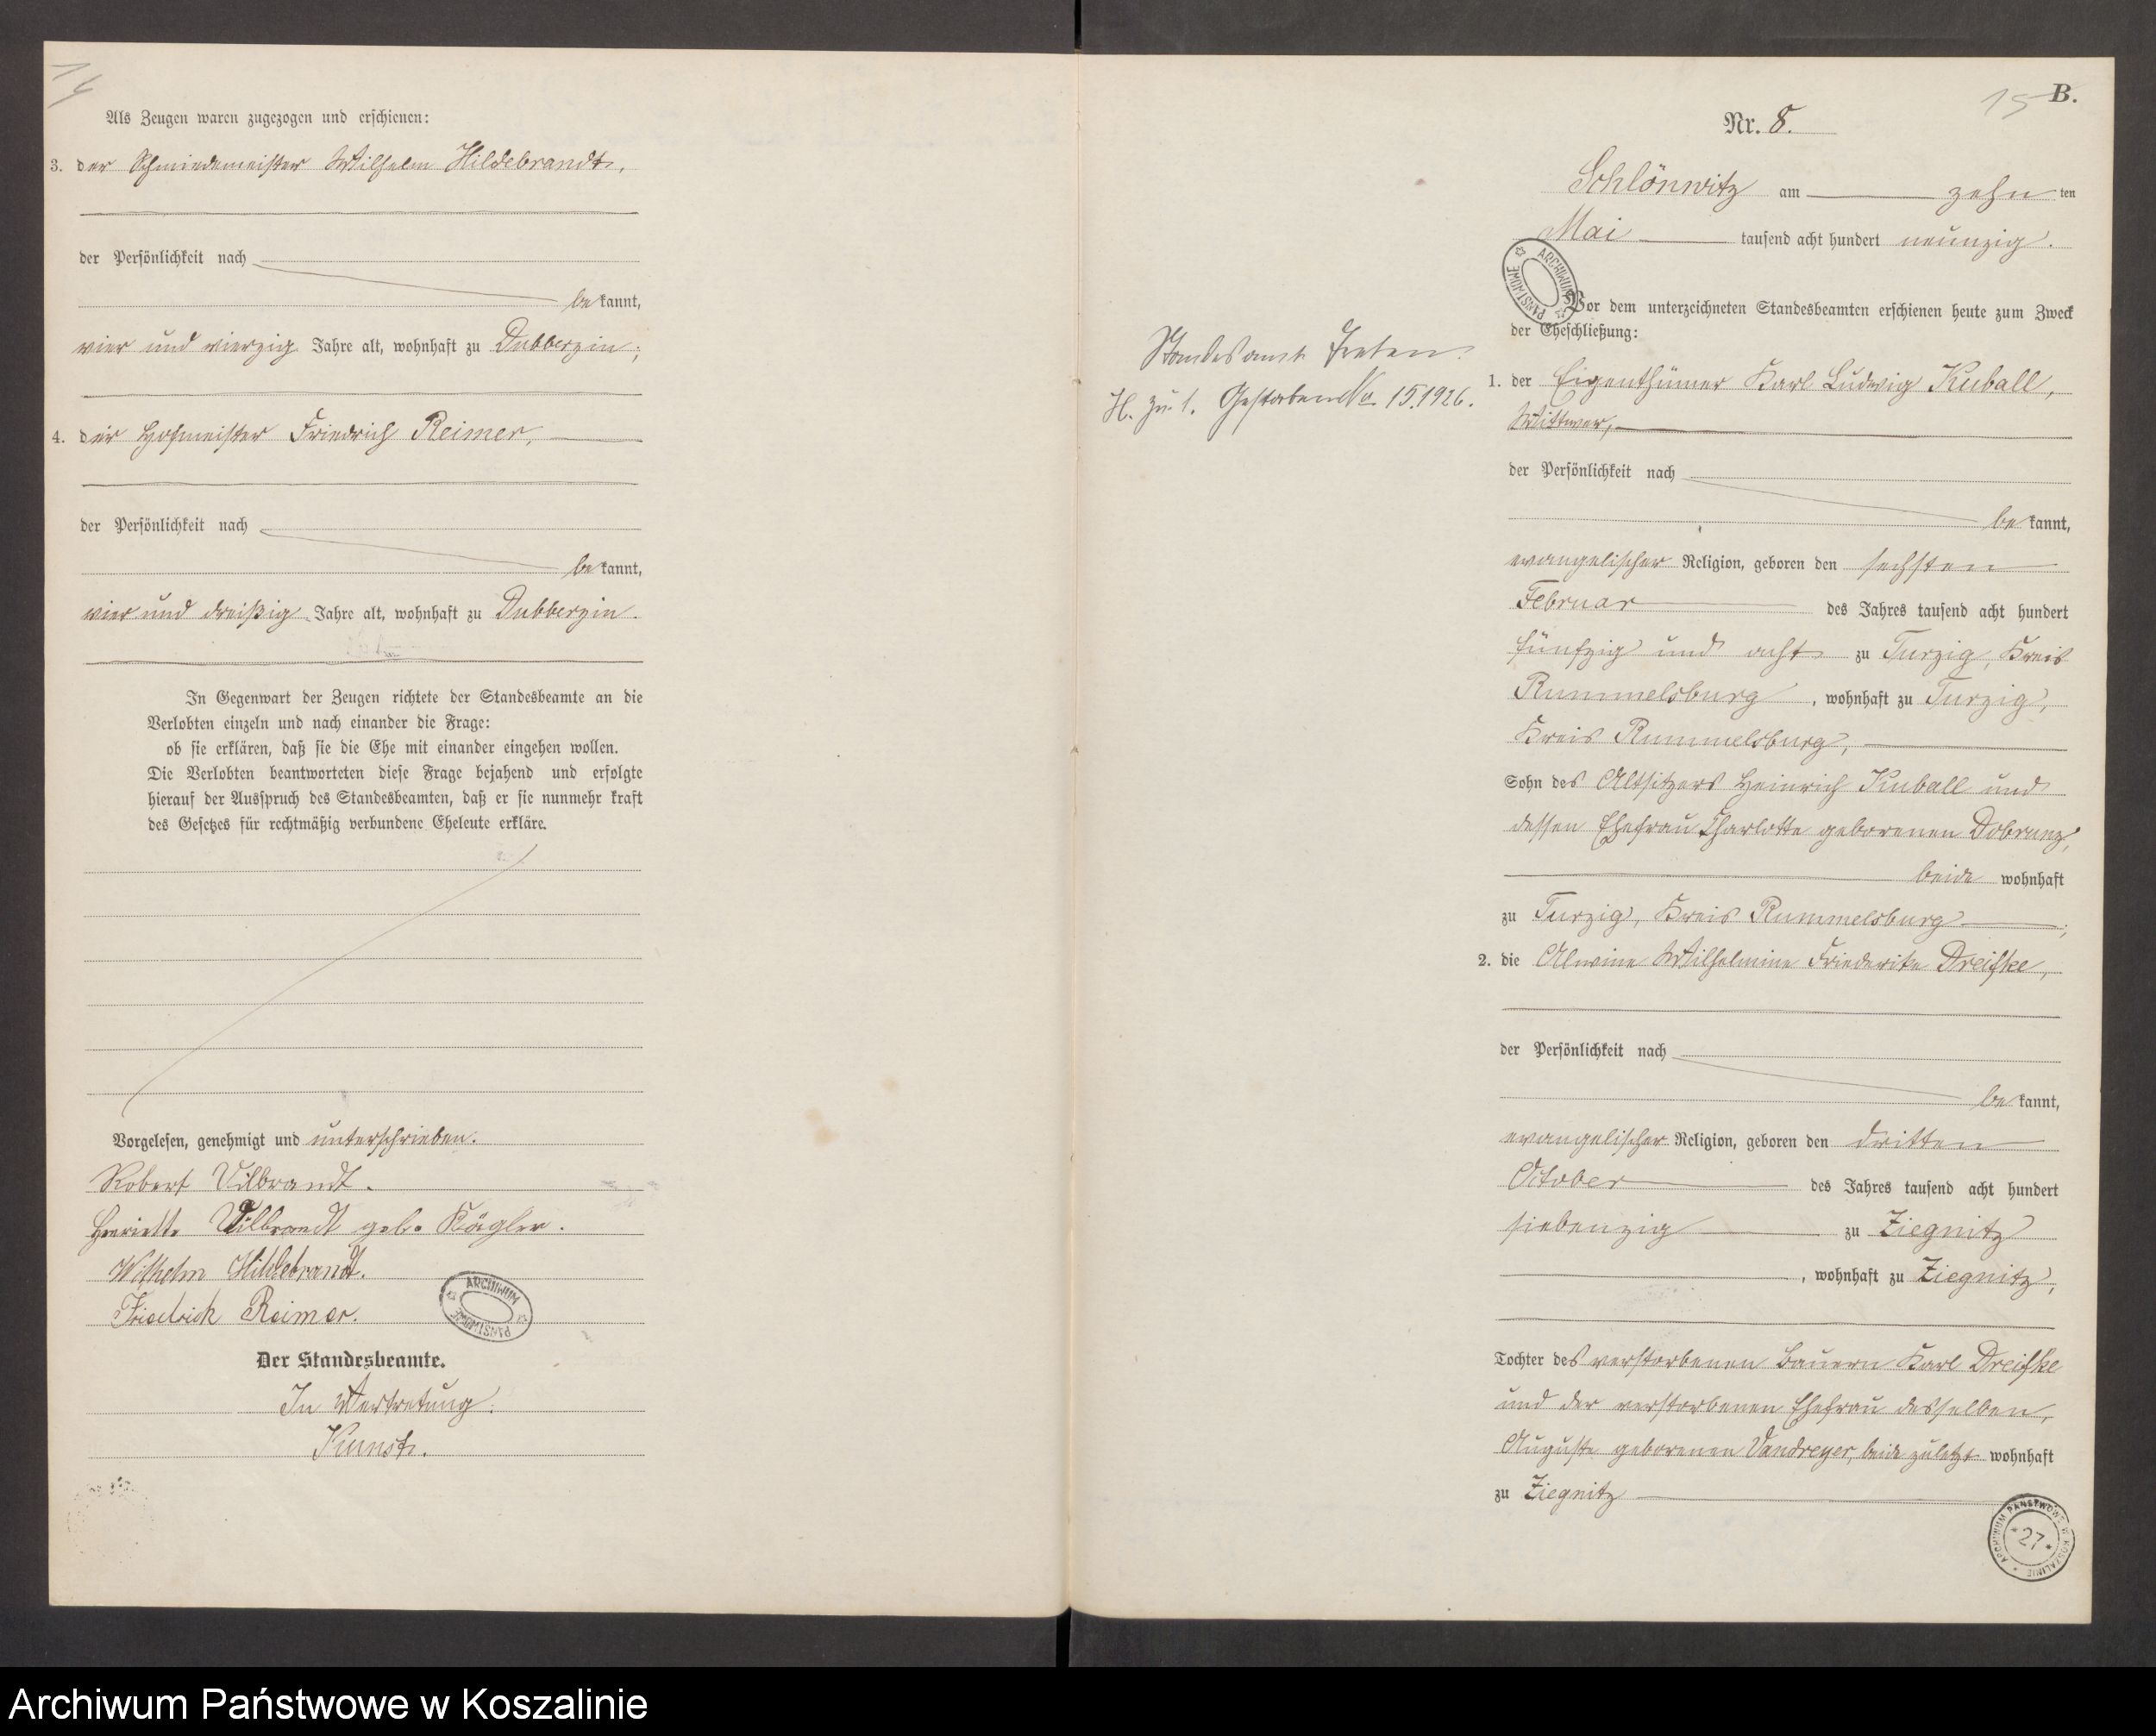 14
Als Zeugen waren zugezogen und erschienen:
3. der Schmiedemeister Wilhelm Hildebrandt,
der Persönlichkeit nach
bekannt,
vier und vierzig Jahre alt, wohnhaft zu Dubberzin;
4. der Hofmeister Friedrich Reimer,
der Persönlichkeit nach
bekannt,
vier und dreißig Jahre alt, wohnhaft zu Dubberzin.
In Gegenwart der Zeugen richtete der Standesbeamte an die
Verlobten einzeln und nach einander die Frage:
ob sie erklären, daß sie die Ehe mit einander eingehen wollen.
Die Verlobten beantworteten diese Frage bejahend und erfolgte
hierauf der Ausspruch des Standesbeamten, daß er sie nunmehr kraft
des Gesetzes für rechtmäßig verbundene Eheleute erkläre.
Vorgelesen, genehmigt und unterschrieben.
Robert Vilbrandt.
Henriette Vilbrandt geb. Kägler.
Wilhelm Hildebrandt.
Friedrich Reimer.
ARCHIWUM PAŃSTWOWE
Der Standesbeamte.
In Vertretung.
Kunst.
15
B.
Nr. 8.
Schlönwitz am zehn ten
Mai tausend acht hundert neunzig.
ARCHIWUM PAŃSTWOWE
Vor dem unterzeichneten Standesbeamten erschienen heute zum Zweck
der Eheschließung:
Standesamt Treten.
H. zu 1. Gestorben No 15.1926.
1. der Eigenthümer Karl Ludwig Kuball,
Wittwer,
der Persönlichkeit nach
bekannt,
evangelischer Religion, geboren den sechsten
Februar des Jahres tausend acht hundert
fünfzig und acht zu Turzig, Kreis
Rummelsburg, wohnhaft zu Turzig,
Kreis Rummelsburg,
Sohn des Altsitzers Heinrich Kuball und
dessen Ehefrau Charlotte geborenen Dobrunz,
beide wohnhaft
zu Turzig, Kreis Rummelsburg;
2. die Alwine Wilhelmine Friederike Dreifke,
der Persönlichkeit nach
bekannt,
evangelischer Religion, geboren den dritten
October des Jahres tausend acht hundert
siebenzig zu Ziegnitz
, wohnhaft zu Ziegnitz,
Tochter des verstorbenen Bauern Karl Dreifke
und der verstorbenen Ehefrau desselben,
Auguste geborenen Vandreyer, beide zuletzt wohnhaft
zu Ziegnitz
ARCHIWUM PAŃSTWOWE W KOSZALINIE
27
Archiwum Państwowe w Koszalinie